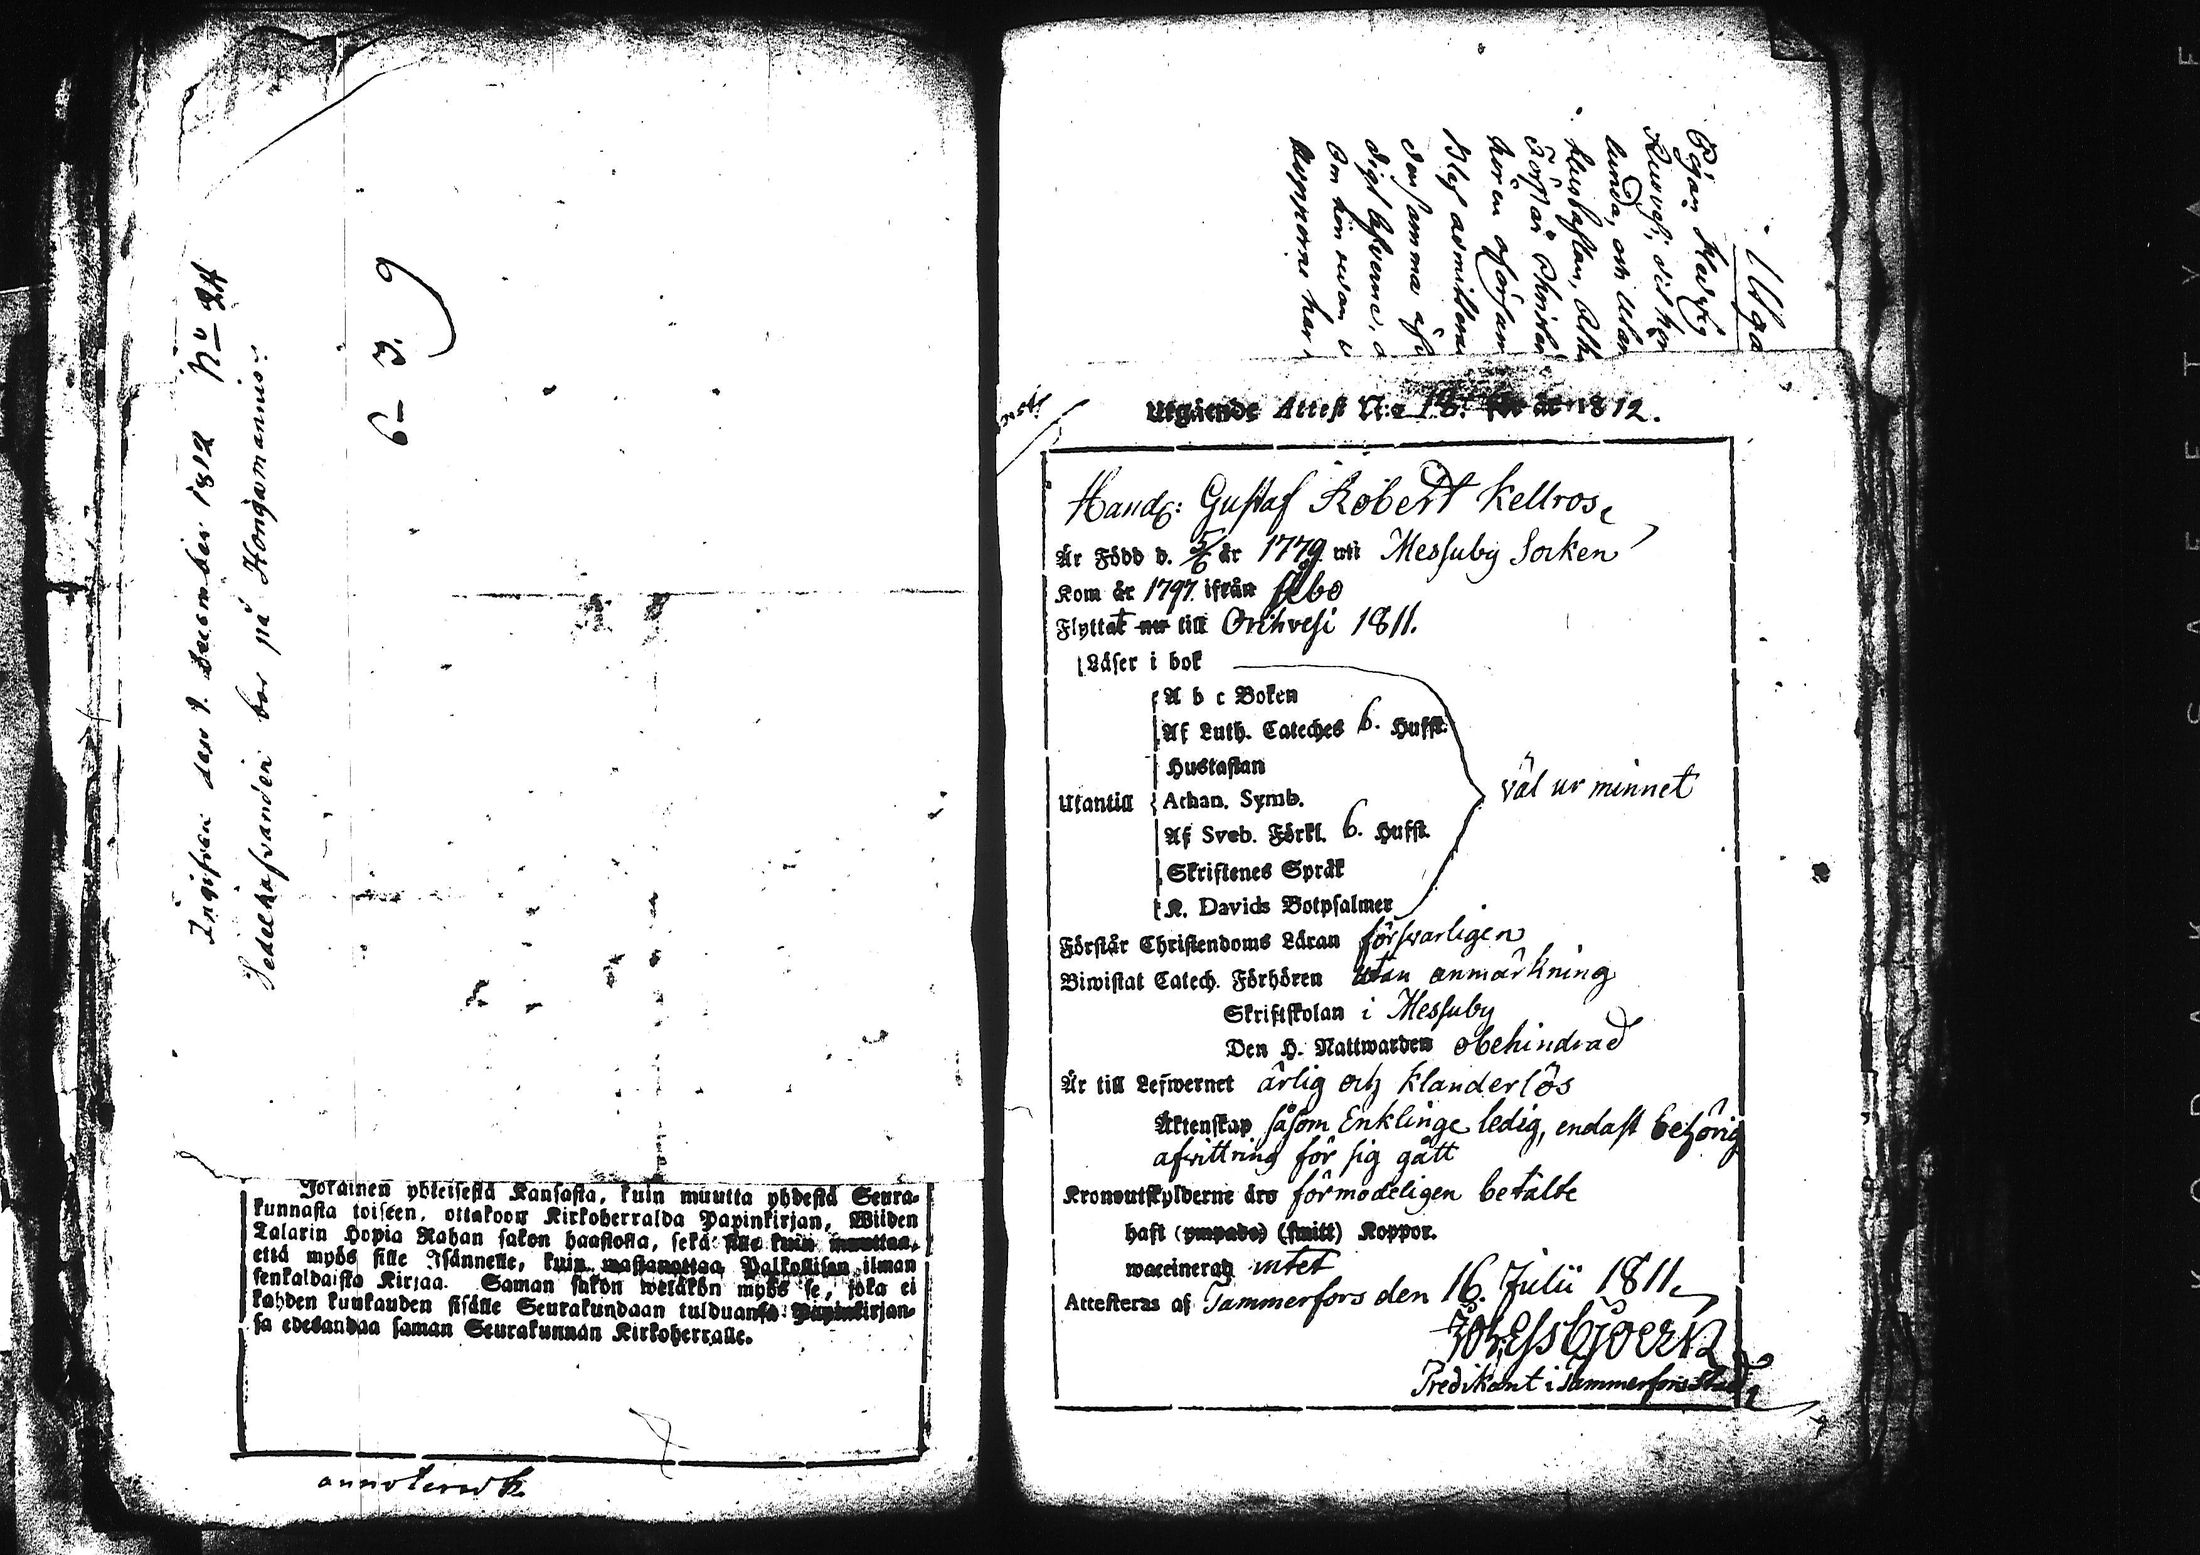 Ingifven den 9. December 1812 No 24
Sedelhafvanden bor på Hongamannis.
6- 3. 9
Jokainen yhteisestä Kansasta, kuin muutta yhdestä Seura-
kunnasta toiseen, ottakoon Kirkoherralda Papinkirjan, Wiiden
Talarin Hopia Rahan sakon haastosta, sekä sille kuin muuttaa,
että myös sille Isännelle, kuin wastanottaa Palkollisen ilman
senkaldaista Kirjaa. Saman sakon wetäkön myös se, joka ei
kahden kuukauden sisälle Seurakundaan tulduansa Papinkirjan-
sa edesandaa saman Seurakunnan Kirkoherralle.
annoterad
Utgå
Pigan Hedvig
lunda, och
Hustaflan, Ath
Förstår Christen
densamma
Om hon
kopporne har
Utgående Attest N:o 18. för år 1812.
Handl: Gustaf Robert Kellros
Är Född d. 5/6 år 1779 uti Messuby Socken
Kom år 1797 ifrån Åbo
Flyttat nu till Orihvesi 1811.
Läser i bok
A b c Boken
Af Luth. Cateches 6. Hufst.
Hustaflan
Utantill Athan. Symb. väl ur minnet
Af Sveb. Förkl. 6. Hufst.
Skriftenes Språk
K. Davids Botpsalmer
Förstår Christendoms Läran försvarligen
Biwistat Catech. Förhören utan anmärkning
Skriftskolan i Messuby
Den H. Nattwarden obehindrad
Är till Lefwernet ärlig och klanderlös
Äktenskap såsom Enklinge ledig, endast behörig
afvittring för sig gått
Kronoutskylderne äro förmodeligen betalte
haft (ympade) (smitt) Koppor.
waccinerad intet
Attesteras af Tammerfors den 16. Julii 1811.
Predikant i Tammerfors Stad